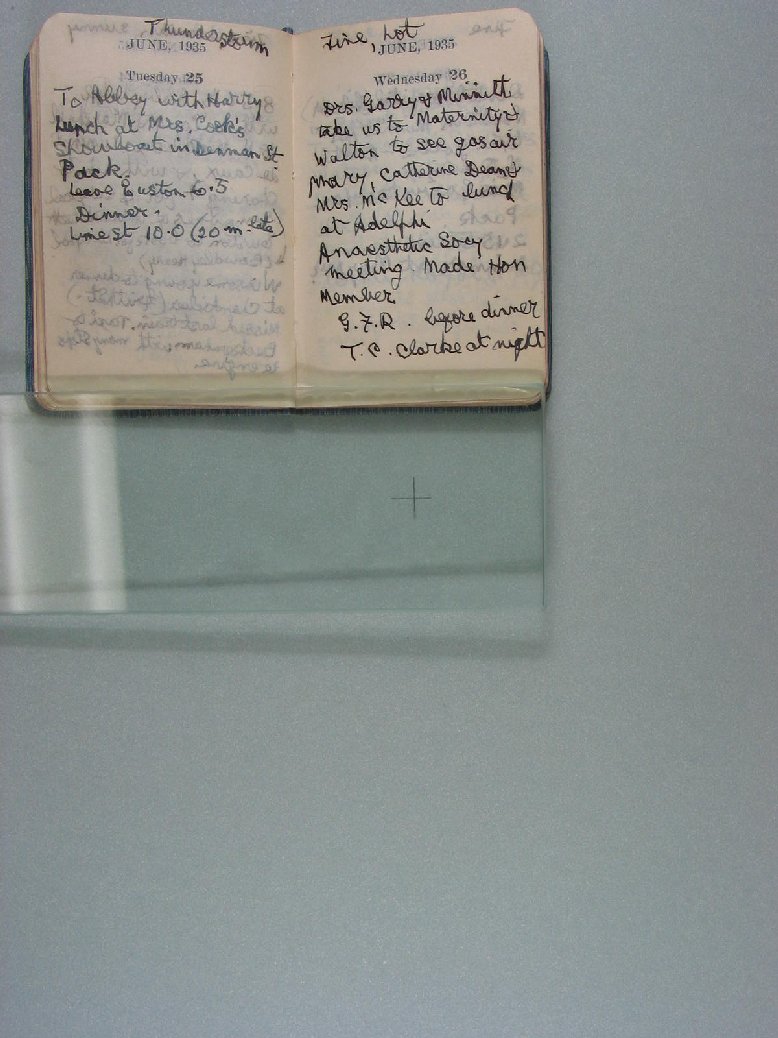 Thunderstorm
JUNE, 1935
Tuesday 25
To Abbey with Harry
Lunch at Mrs. Cook's
Showboat in Denman St
Pack.
Leave Euston 6.5
Dinner.
Lime St 10.0 (20 m. late)
Fine, hot
JUNE, 1935
Wednesday 26
Drs. Garry & Minnitt
take us to Maternity &
Walton to see gas air
Mary, Catherine Deane &
Mrs. McKee to lunch
at Adelphi
Anaesthetic Socy
meeting. Made Hon
Member
G.F.R. before dinner
T.C. Clarke at night